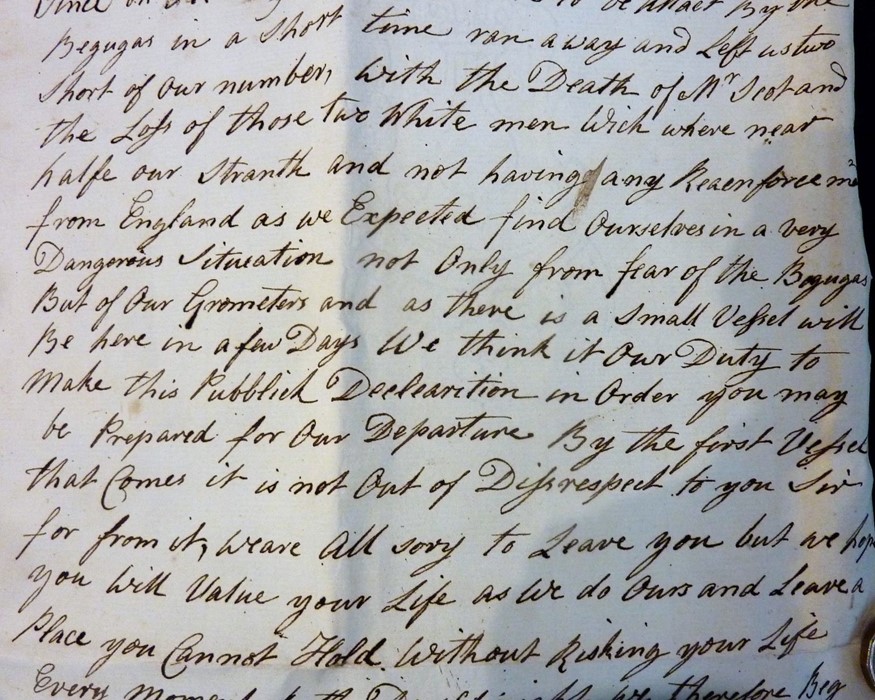 to be attact By the
Begugas in a Short time ran away and Left us two
Short of our number, With the Death of Mr Scot and
the Loss of those two White men Wich where near
halfe our Stranth and not having any Reaenforceme
from England as we Expected find Ourselves in a very
Dangerous Situeation not Only from fear of the Begugas
But of Our Grometers and as there is a Small Vessel will
Be here in a few Days We think it Our Duty to
Make this Pubblick Declearition in Order you may
be Prepared for Our Departure By the first Vessel
that Comes it is not Out of Dissrespect to you Sir
for from it, weare All sory to Leave you but we hop
you Will Value your Life as We do Ours and Leave a
Place you Cannot Hold Without Risking your Life
Every Moment we therefore Beg